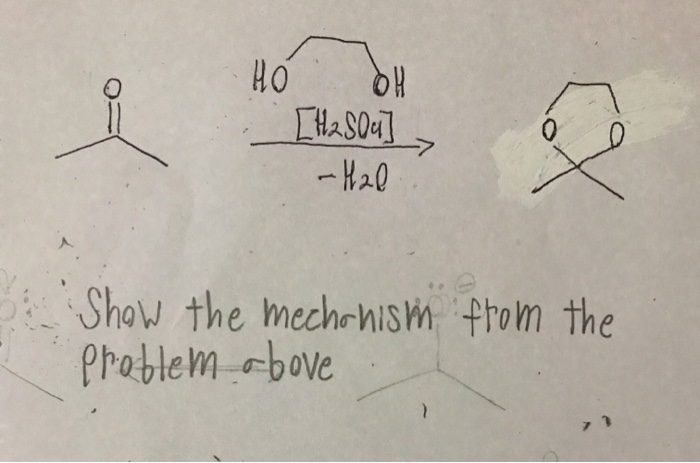 O
HO OH
[H2SO4]
-H2O
O O
Show the mechanism from the
problem above